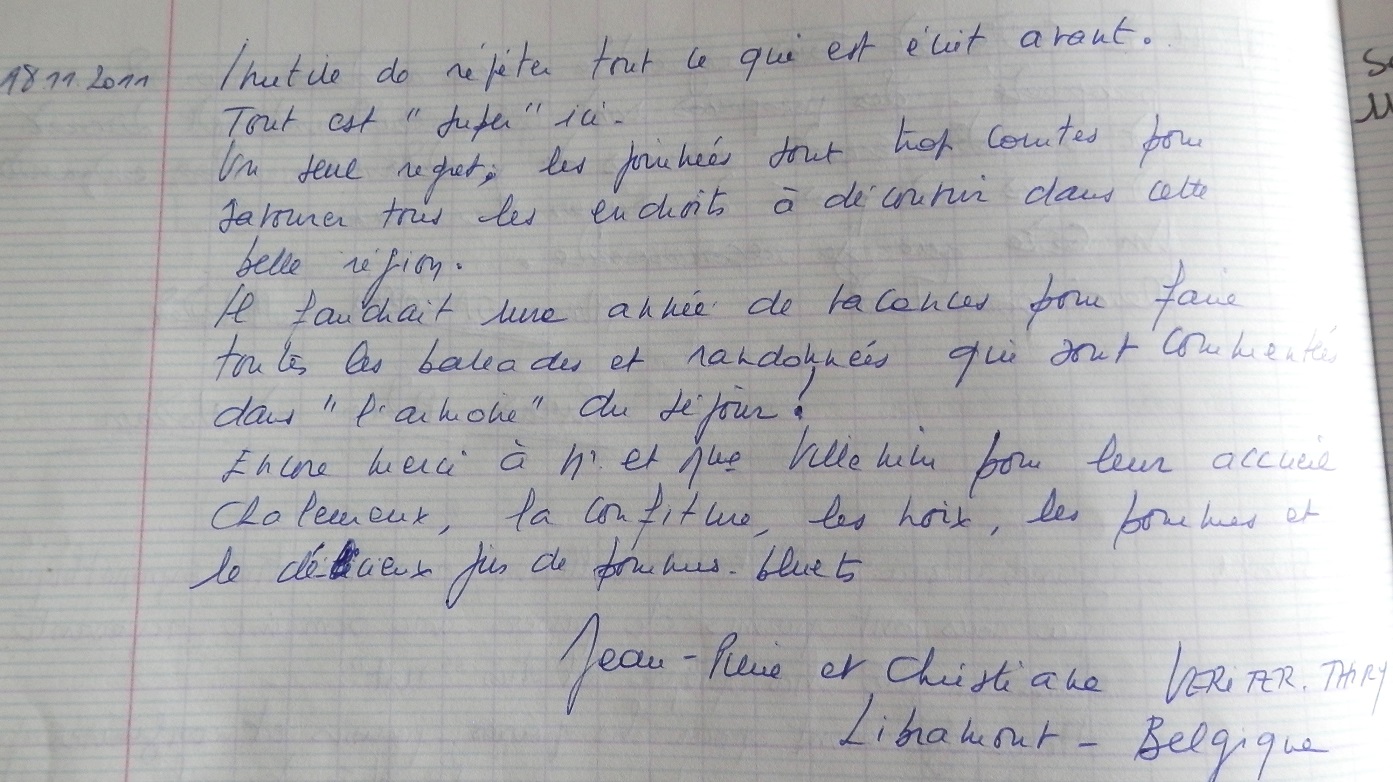 18.11.2011 Inutile de répéter tout ce qui est écrit avant.
Tout est "super" ici.
Un seul regret, les journées sont trop courtes pour
savourer tous les endroits à découvrir dans cette
belle région.
Il faudrait une année de vacances pour faire
toutes les balades et randonnées qui sont commentées
dans "l'armoire" du séjour !
Encore merci à Mr et Mme pour leur accueil
chaleureux, la confiture, les noix, les pommes et
le délicieux jus de pommes-bluets
Jean-Pierre et Christiane VERITER. THIRY
Libramont - Belgique